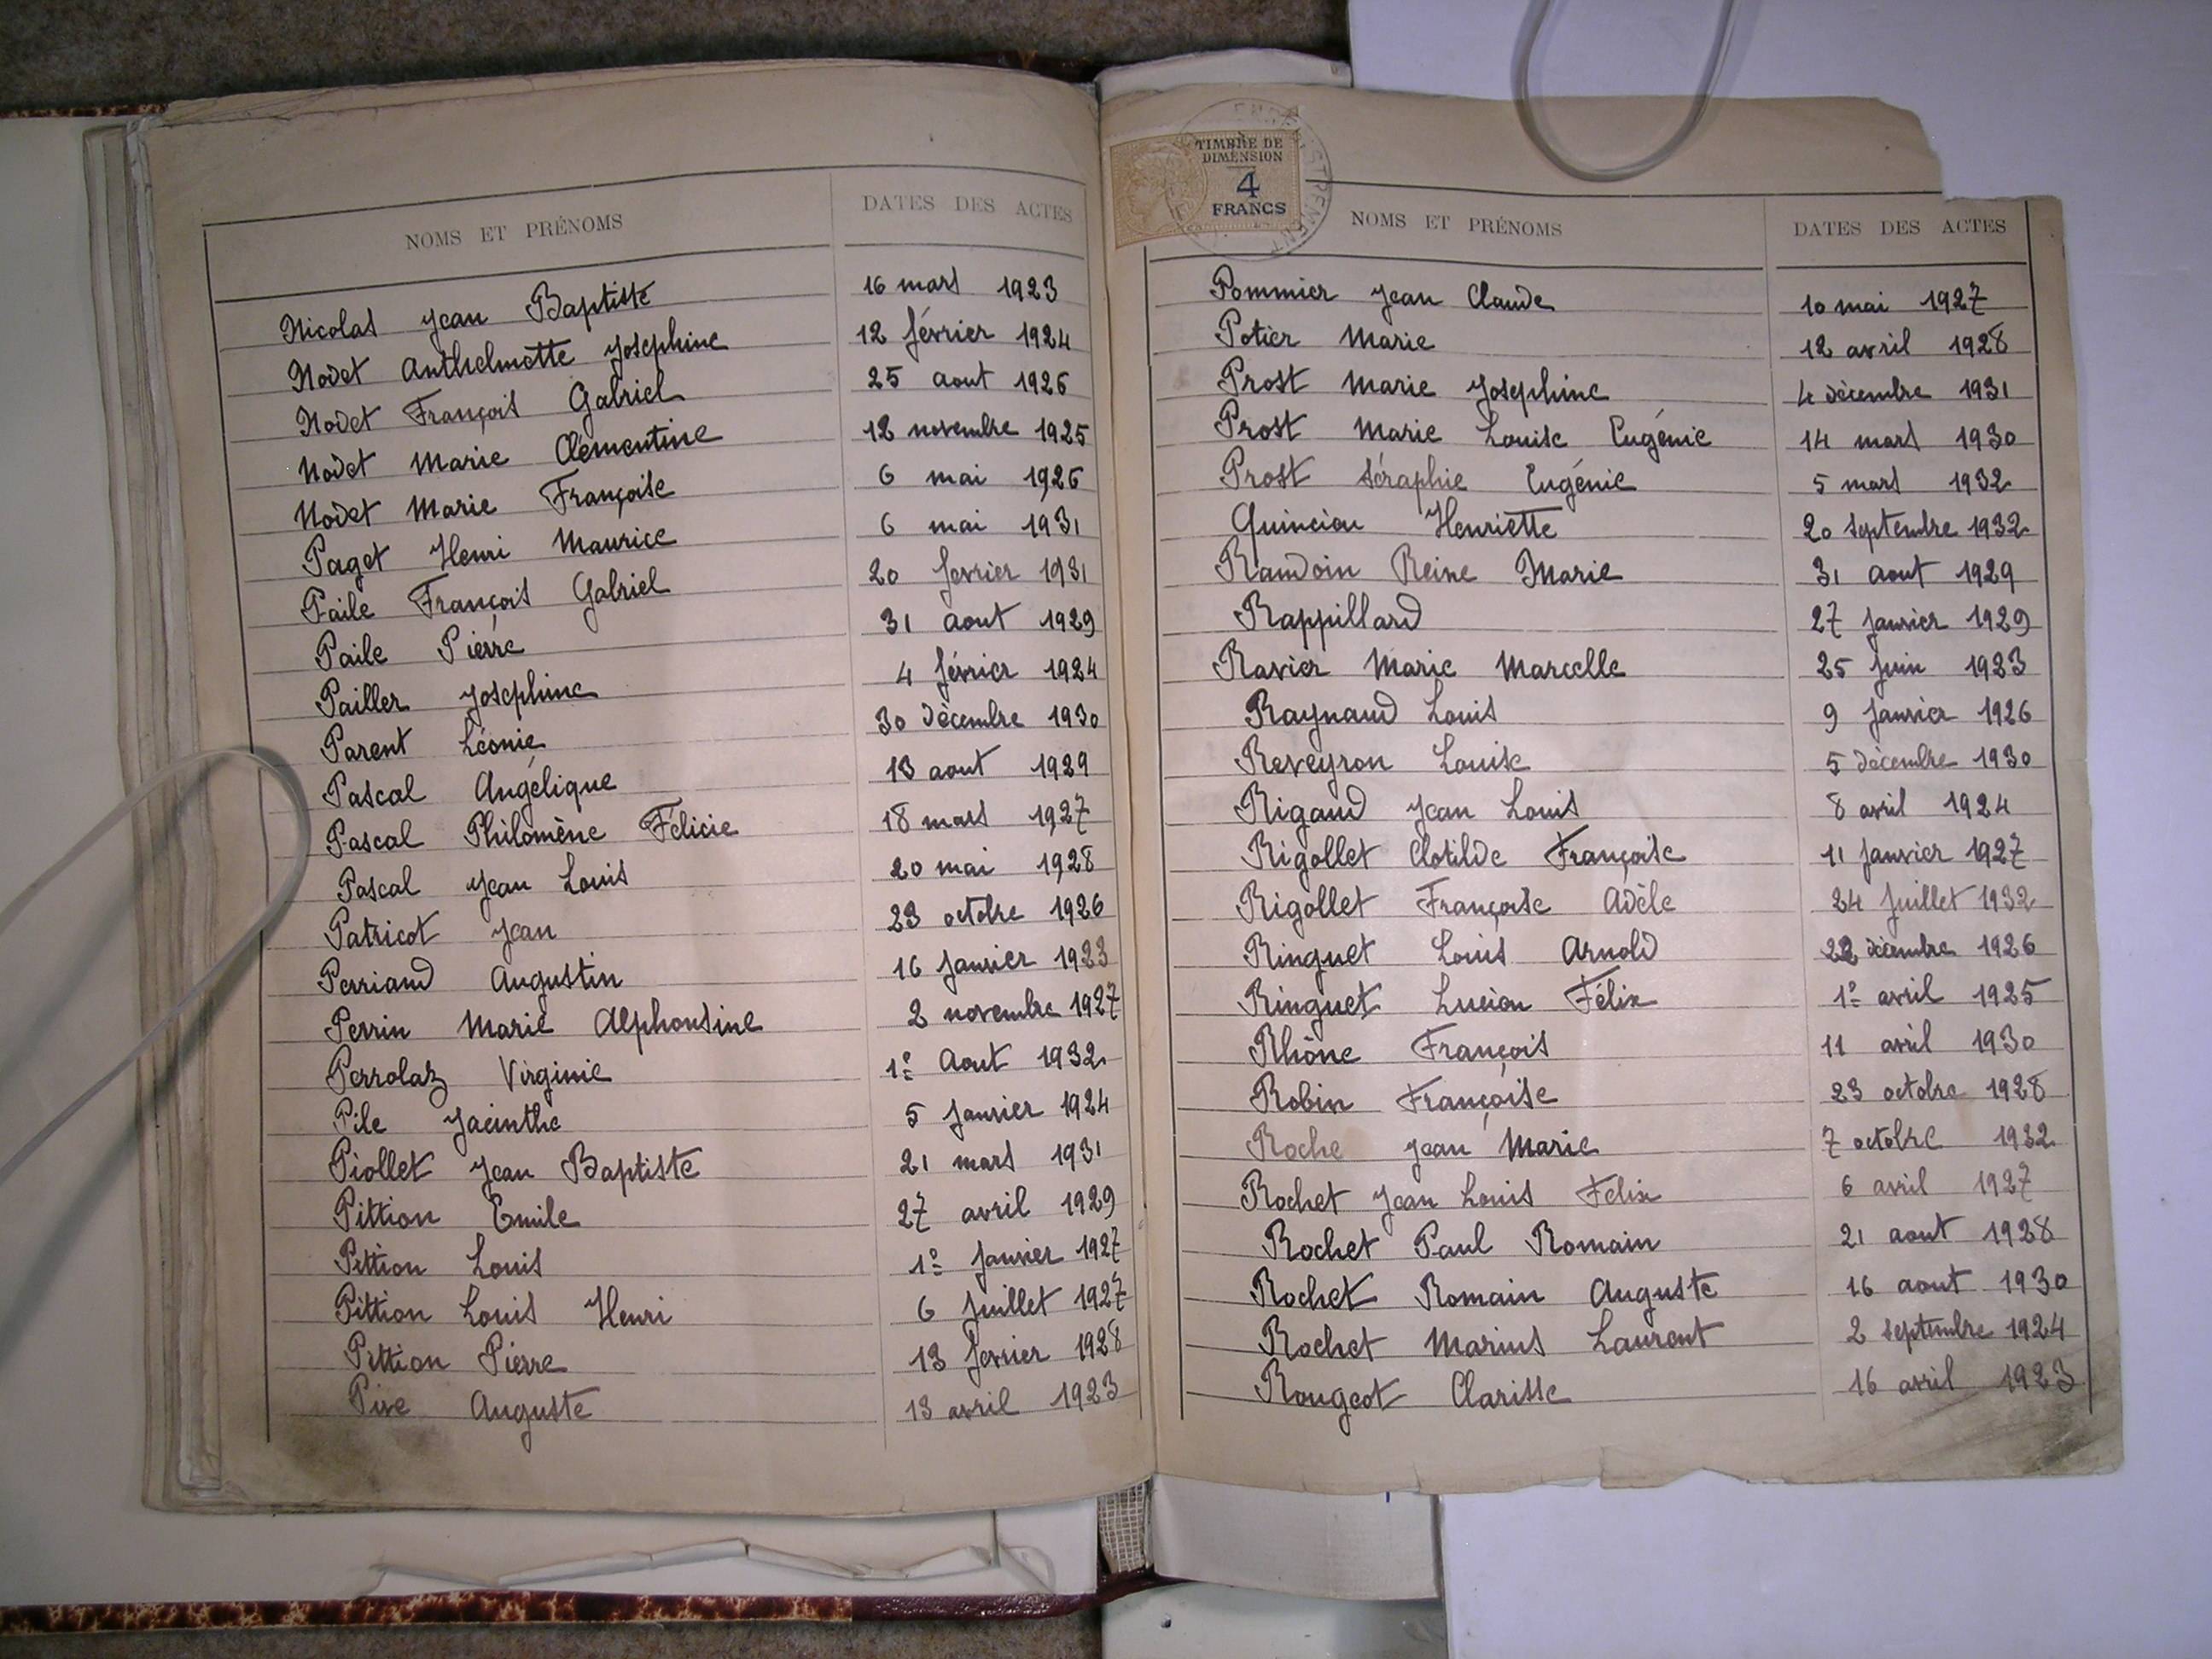 NOMS ET PRÉNOMS DATES DES ACTES
Nicolas Jean Baptiste 16 mars 1923
Nodet Anthelmette Josephine 12 février 1924
Nodet François Gabriel 25 aout 1926
Nodet Marie Clémentine 12 novembre 1925
Nodet Marie Françoise 6 mai 1926
Paget Henri Maurice 6 mai 1931
Paile François Gabriel 20 fevrier 1931
Paile Pierre 31 aout 1929
Pailler Josephine 4 février 1924
Parent Léonie 30 décembre 1930
Pascal Angélique 13 aout 1929
Pascal Philomène Félicie 18 mars 1927
Pascal Jean Louis 20 mai 1928
Patricot Jean 23 octobre 1926
Perriand Augustin 16 janvier 1923
Perrin Marie Alphonsine 2 novembre 1927
Perrolaz Virginie 1e Aout 1932
Pile Jacinthe 5 janvier 1924
Piollet Jean Baptiste 21 mars 1931
Pittion Emile 27 avril 1929
Pittion Louis 1e janvier 1927
Pittion Louis Henri 6 juillet 1927
Pittion Pierre 13 fevrier 1928
Pive Auguste 13 avril 1923
TIMBRE DE
DIMENSION
4
FRANCS
ENREGISTREMENT
NOMS ET PRÉNOMS DATES DES ACTES
Pommier Jean Claude 10 mai 1927
Potier Marie 12 avril 1928
Prost Marie Josephine 4 décembre 1931
Prost Marie Louise Eugénie 14 mars 1930
Prost Séraphie Eugénie 5 mars 1932
Quincieu Henriette 20 septembre 1932
Raudoin Reine Marie 31 Aout 1929
Rappillard 27 janvier 1929
Ravier Marie Marcelle 25 juin 1923
Raynaud Louis 9 janvier 1926
Reveyron Louise 5 décembre 1930
Rigaud Jean Louis 8 avril 1924
Rigollet Clotilde Françoise 11 janvier 1927
Rigollet Françoise Adèle 24 juillet 1932
Ringuet Louis Arnold 22 décembre 1926
Ringuet Lucien Félix 1e avril 1925
Rhône François 11 avril 1930
Robin Françoise 23 octobre 1928
Roche Jean Marie 7 octobre 1932
Rochet Jean Louis Felix 6 avril 1927
Rochet Paul Romain 21 aout 1928
Rochet Romain Auguste 16 aout 1930
Rochet Marius Laurent 2 septembre 1924
Rougeot Clarisse 16 avril 1923